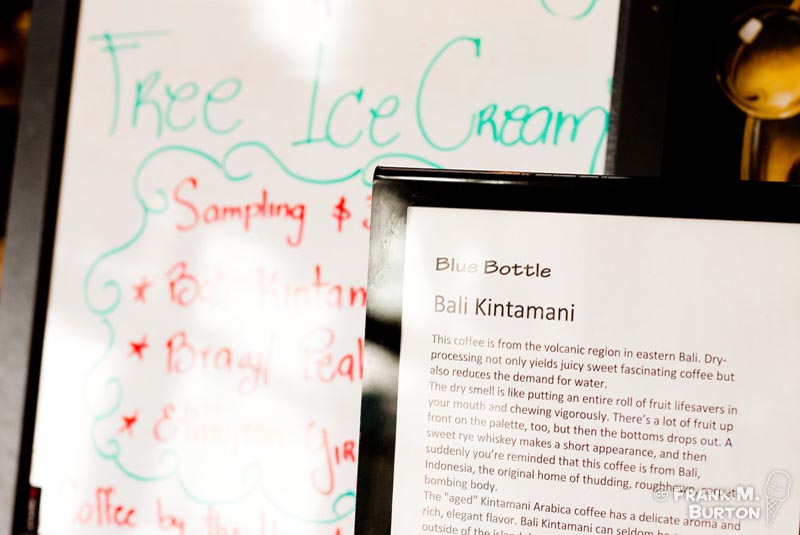 Free Ice Cream
Sampling $
* Bali Kintam
* Brazil Peal
* Ethiopian Gir
Coffee by the
Blue Bottle
Bali Kintamani
This coffee is from the volcanic region in eastern Bali. Dry-
processing not only yields juicy sweet fascinating coffee but
also reduces the demand for water.
The dry smell is like putting an entire roll of fruit lifesavers in
your mouth and chewing vigorously. There's a lot of fruit up
front on the palette, too, but then the bottoms drops out. A
sweet rye whiskey makes a short appearance, and then
suddenly you're reminded that this coffee is from Bali,
Indonesia, the original home of thudding, roughhewn, carpet-
bombing body.
The "aged" Kintamani Arabica coffee has a delicate aroma and
rich, elegant flavor. Bali Kintamani can seldom be
outside of the
© Frank M.
Burton